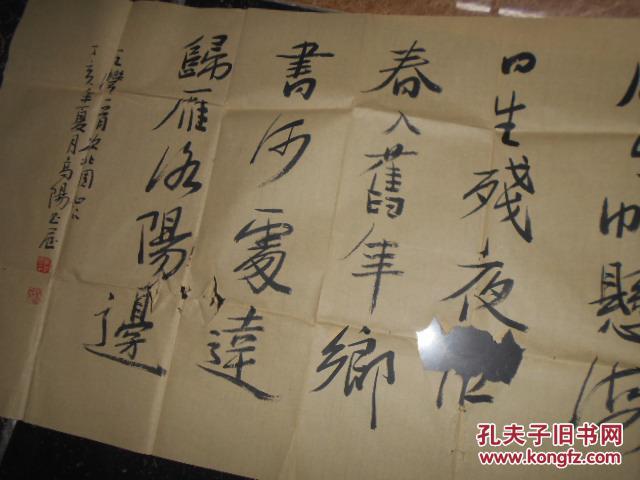 懸海
日生殘夜
春入舊年鄉
書何處達
歸雁洛陽邊
王灣一首次北固山下
丁亥年夏月高陽
孔夫子旧书网
www.kongfz.com